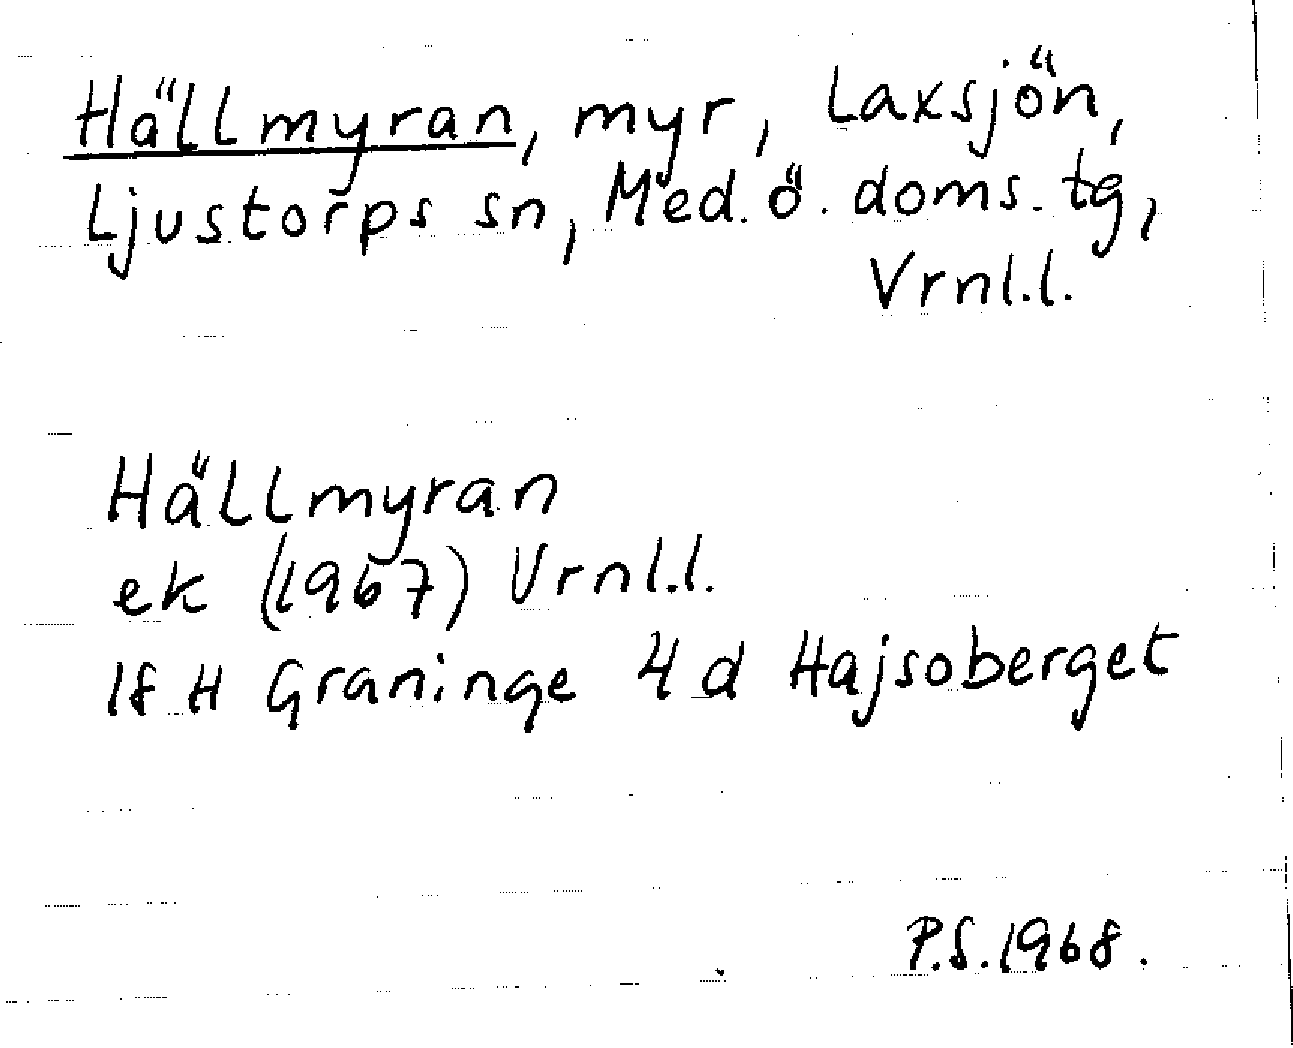 Hällmyran, myr, Laxsjön,
Ljustorps sn, Med. ö. doms. tg,
Vrnl.l.
Hällmyran
ek (1967) Vrnl.l.
18 H Graninge 4 d Hajsoberget
P.S. 1968.